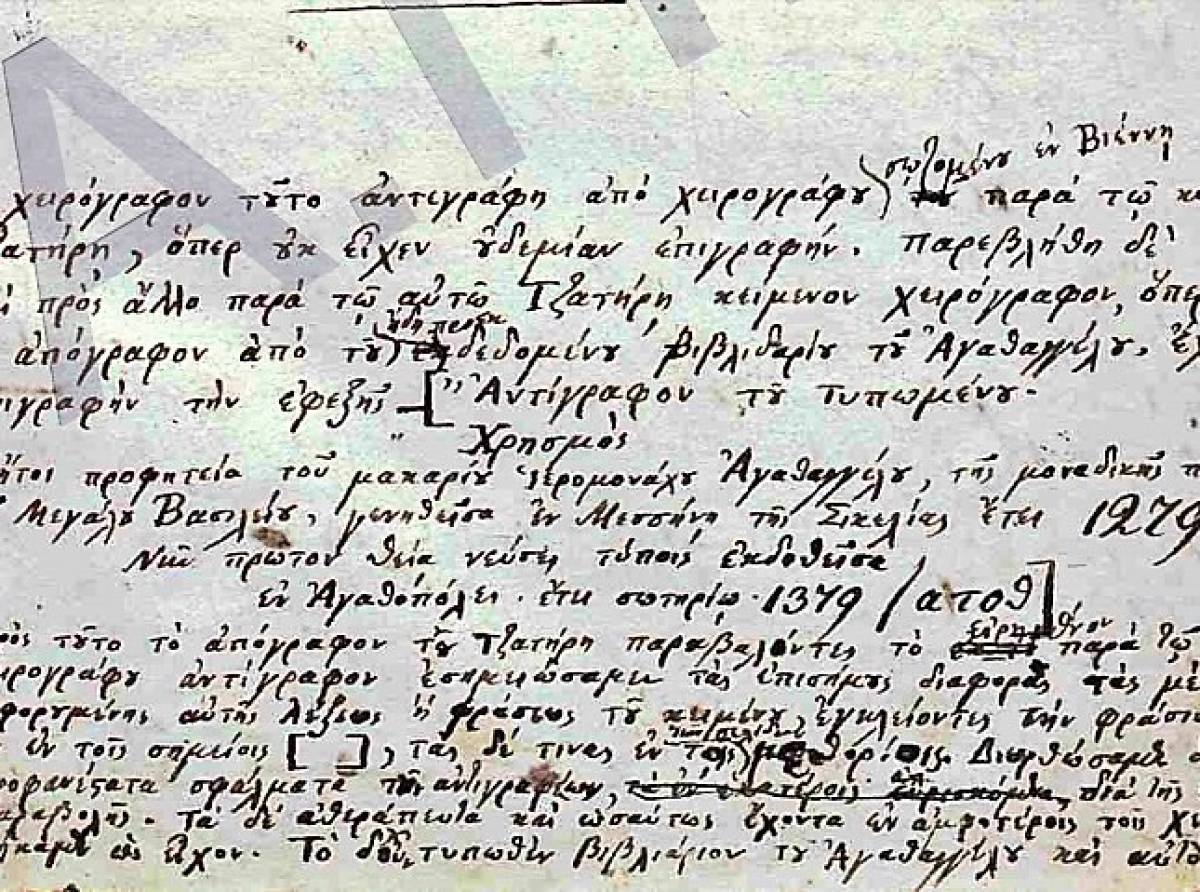 σωζομένȣ ἐν Βιέννῃ
χειρόγραφον τȣ͂το ἀντεγράφη ἀπό χειρογράφȣ παρά τῷ κ
ατήρη, ὅπερ ȣ̓κ εἶχεν ȣ̓δεμίαν ἐπιγραφήν. Παρεβλήθη δὲ
πρὸς ἄλλο παρά τῷ αὐτῷ Τζατήρη κείμενον χειρόγραφον, ὅπερ
ἀπόγραφον ἀπό τȣ͂ ἐκδεδομένȣ βιβλιδαρίȣ τȣ͂ Ἀγαθαγγέλȣ,
ιγραφὴν τὴν ἐφεξῆς [" Ἀντίγραφον τȣ͂ τυπωμένȣ.
" Χρησμὸς
ἤτοι προφητεία τοῦ μακαρίȣ ἱερομονάχȣ Ἀγαθαγγέλȣ, τῆς μοναδικῆς π
Μεγάλȣ Βασιλείȣ, γενηθεῖσα ἐν Μεσσήνῃ τῆς Σικελίας ἔτει 1279
Νῦν πρῶτον θεία νεύσει τύποις ἐκδοθεῖσα
ἐν Ἀγαθόπόλει. ἔτει σωτηρίῳ. 1379 (ατοθ]
ρὸς τȣ͂το τὸ ἀπόγραφον τȣ͂ Τζατήρη παραβαλόντες τὸ εὑρηθὲν παρά τῷ
ιρογράφȣ ἀντίγραφον ἐσημειώσαμεν τὰς ἐπισήμȣς διαφορὰς τὰς με
φορȣμένης αὐτῆς λέξεως ἢ φράσεως τȣ͂ κειμένȣ, ἐγκλείοντες τὴν φράσιν
ἐν τοῖς σημείοις [ ], τὰς δέ τινας ἐν τοῖς Διωρθώσαμεν
οφανέστατα σφάλματα τῶν ἀντιγραφέων, διὰ τῆς
αραβολῆς. τὰ δὲ ἀθεράπευτα καὶ ὡσαύτως ἔχοντα ἐν ἀμφοτέροις τοῖς χε
ήκαμεν ὡς εἶχον. Τὸ δὲ τυπωθὲν βιβλιάριον τȣ͂ Ἀγαθαγγέλȣ καὶ αὐτὸ